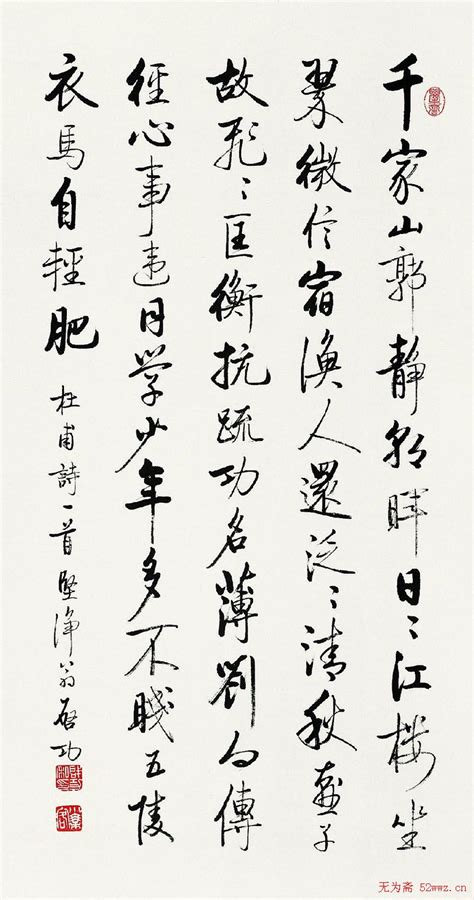 千家山郭靜朝暉日〻江樓坐
翠微信宿漁人還泛〻清秋燕子
故飛〻匡衡抗疏功名薄劉向傳
經心事違同學少年多不賤五陵
衣馬自輕肥
杜甫詩一首堅淨翁啓功
无为斋 52wwz.cn